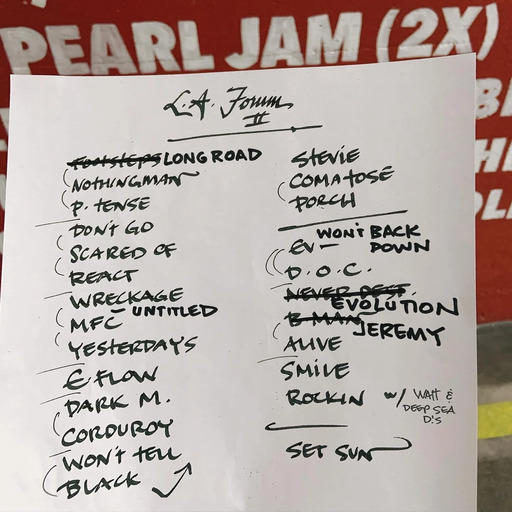 PEARL JAM (2X)
L.A. Forum
II
FOOTSTEPS LONG ROAD
NOTHINGMAN
P. TENSE
DON'T GO
SCARED OF
REACT
WRECKAGE
MFC - UNTITLED
YESTERDAYS
E FLOW
DARK M.
CORDUROY
WON'T TELL
BLACK
STEVIE
COMATOSE
PORCH
EV - WON'T BACK DOWN
D.O.C.
NEVER DEST.
EVOLUTION
B MAN JEREMY
ALIVE
SMILE
ROCKIN w/ WATT &
DEEP SEA
D'S
SET SUN